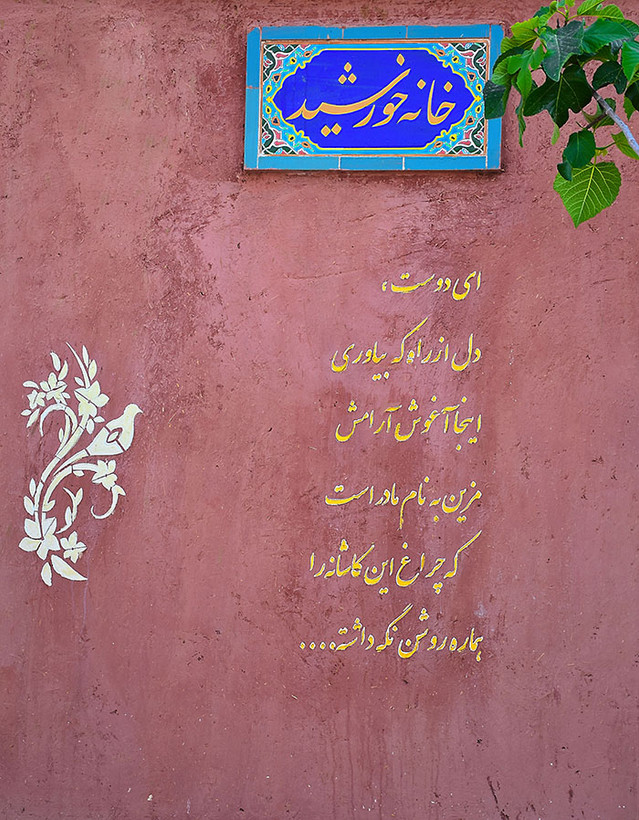 خانه خورشید
ای دوست،
دل از راه که بیاوری
اینجا آغوش آرامش
مزین به نام مادر است
که چراغ این کاشانه را
هماره روشن نگه داشته....